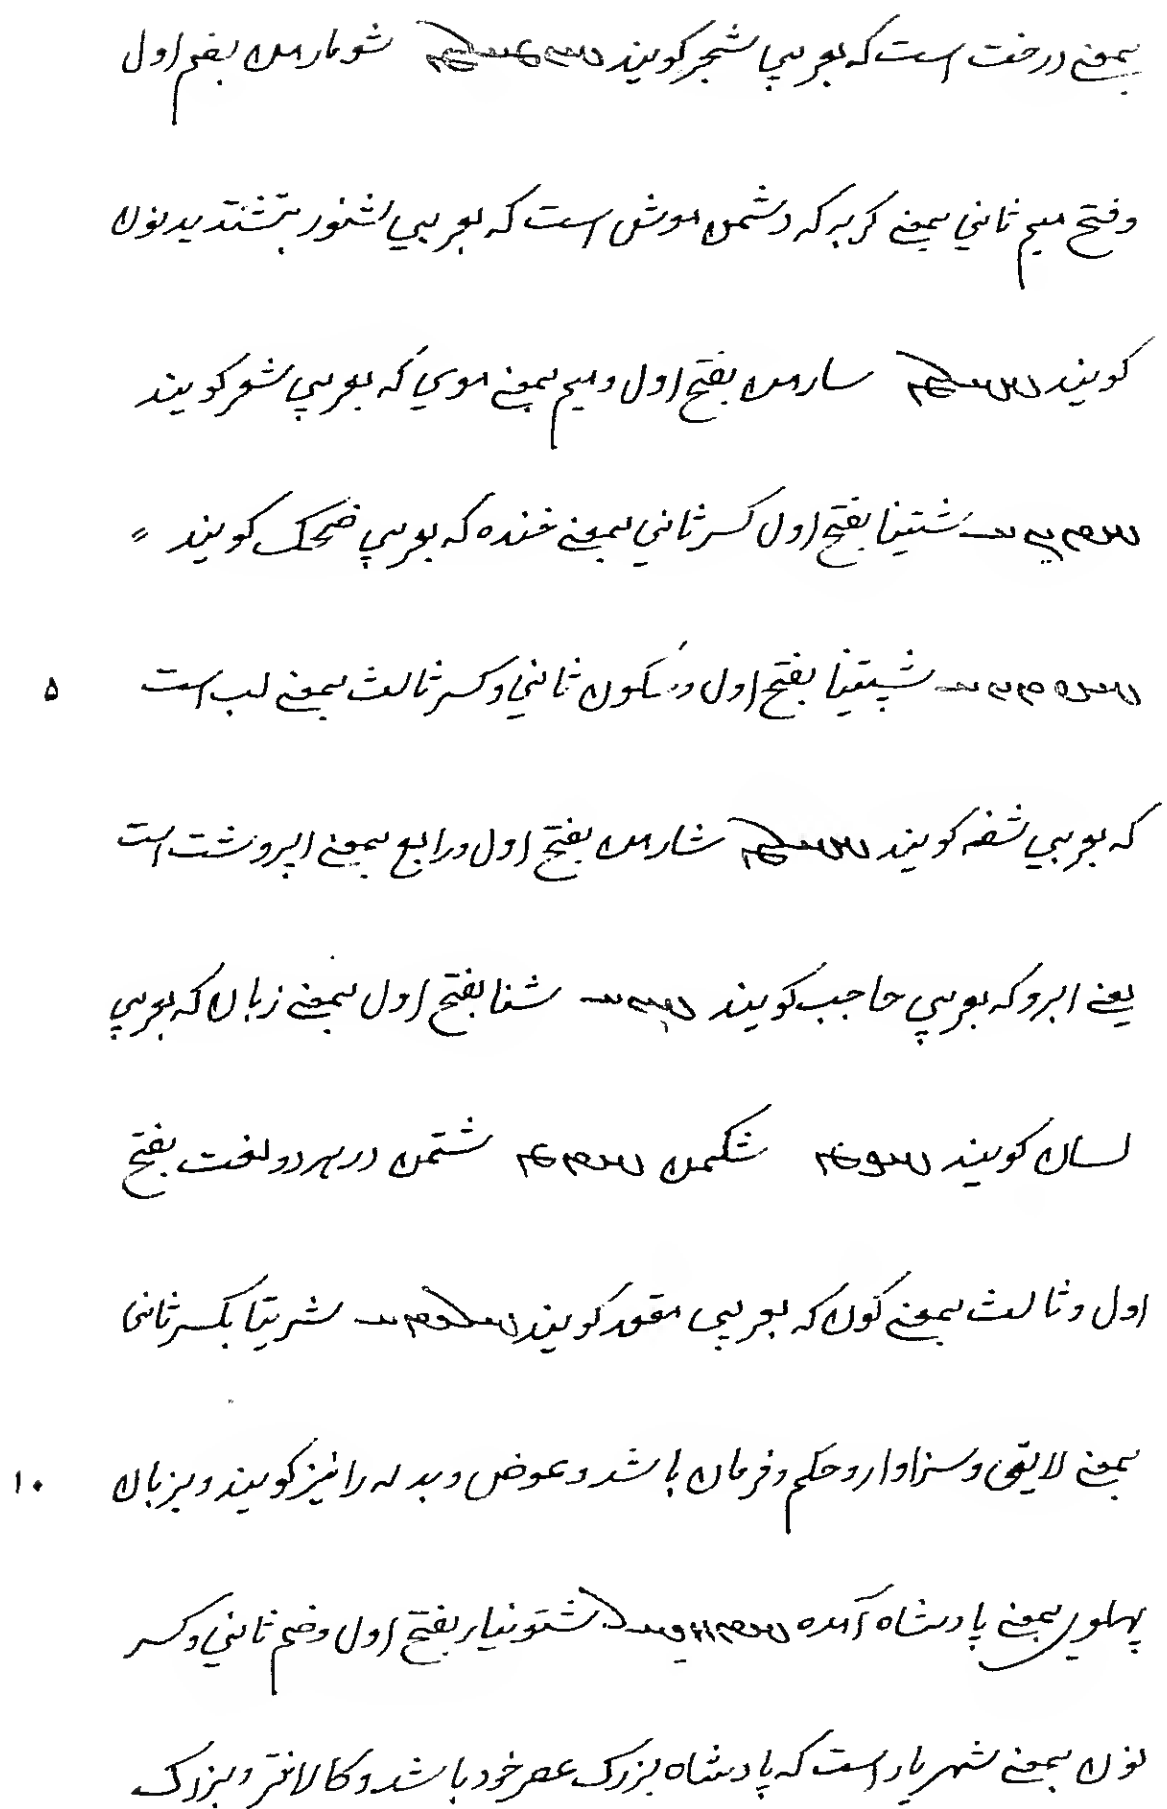 بمعنے درخت است که بعربي شجر گويند شومارمن بضم اول
وفتح ميم ثاني بمعنے گربه که دشمن موش است که بعربي سنور بتشديد نون
گويند سارمن بفتح اول وميم بمعنے موي که بعربي شعر گويند
شتينا بفتح اول کسر ثاني بمعنے خنده که بعربي ضحک گويند
شپتينا بفتح اول وسکون ثاني وکسر ثالث بمعنے لب است ۵
که بعربي شفه گويند شارمن بفتح اول ورابع بمعنے ابروشت است
يعنے ابرو که بعربي حاجب گويند شنا بفتح اول بمعنے زبان که بعربي
لسان گويند شکمن شتمن در هر دو لغت بفتح
اول وثالث بمعنے کون که بعربي مقعد گويند شريتا بکسر ثاني
بمعنے لايق وسزاوار وحکم وفرمان باشد وعوض وبدله را نيز گويند وبزبان ۱۰
پهلوي بمعنے پادشاه آمده شتونيار بفتح اول وضم ثاني وکسر
نون بمعنے شهريار است که پادشاه بزرک عصر خود باشد وکالانتر وبزرک